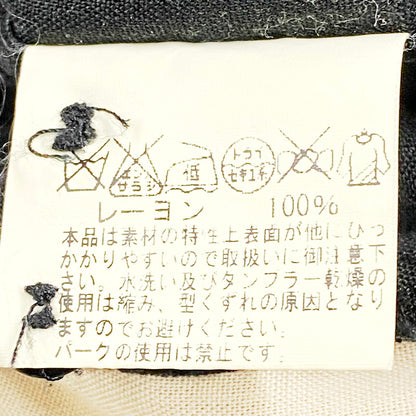 エンソ
サラシ
低
ドライ
セキユ系
レーヨン 100%
本品は素材の特性上表面が他にひっ
かかりやすいので取扱いに御注意下
さい。水洗い及びタンフラー乾燥の
使用は縮み、型くずれの原因となり
ますのでお避けください。
パークの使用は禁止です。